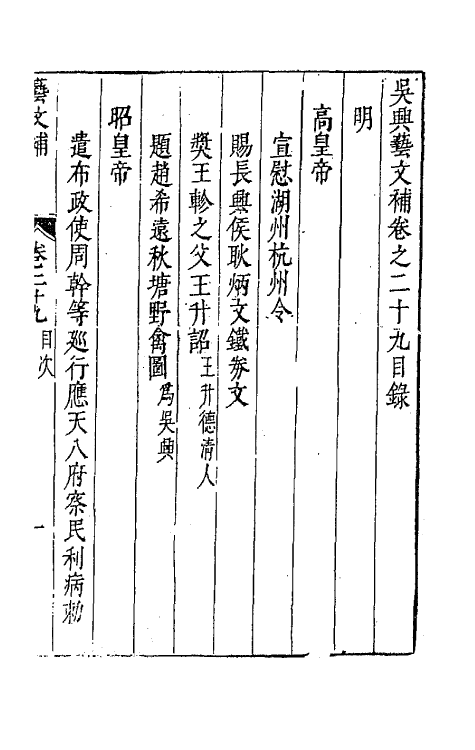 吳興藝文補卷之二十九目錄
明
高皇帝
宣慰湖州杭州令
賜長興侯耿炳文鐵券文
奬王軫之父王升詔王升德清人
題趙希遠秋塘野禽圖爲吳興
昭皇帝
遣布政使周幹等廵行應天八府察民利病勑
藝文補 卷二十九目次 一